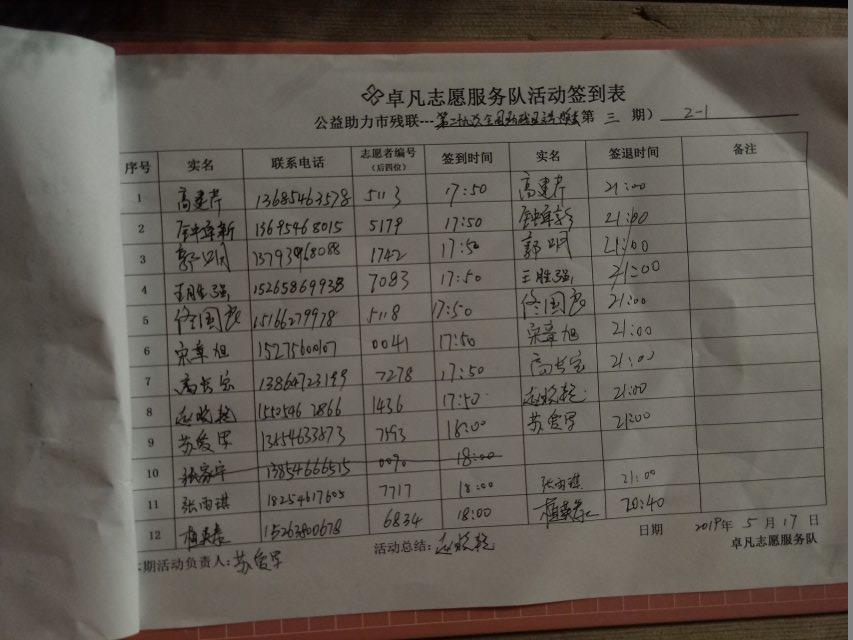 卓凡志愿服务队活动签到表
公益助力市残联---第二十九次全国助残日 第 三 期) 2-1
序号 实名 联系电话 志愿者编号(后四位) 签到时间 实名 签退时间 备注
1 高建芹 13685463578 5113 17:50 高建芹 21:00
2 13695468015 5179 17:50 21:00
3 郭明 13793968088 1742 17:50 郭明 21:00
4 王胜强 15265869938 7083 17:50 王胜强 21:00
5 佟国良 15166279978 5118 17:50 佟国良 21:00
6 宋章旭 15275600107 0041 17:50 宋章旭 21:00
7 高长宝 13864723199 7278 17:50 高长宝 21:00
8 1550546 2866 1436 17:50 21:00
9 苏爱军 13454633873 7593 18:00 苏爱军 21:00
10 13854666515 0090 18:00
11 张雨琪 18254617605 7717 18:00 张雨琪 21:00
12 15263800678 6834 18:00 20:40
本期活动负责人:苏爱军 活动总结: 日期 2019年 5 月 17 日
卓凡志愿服务队